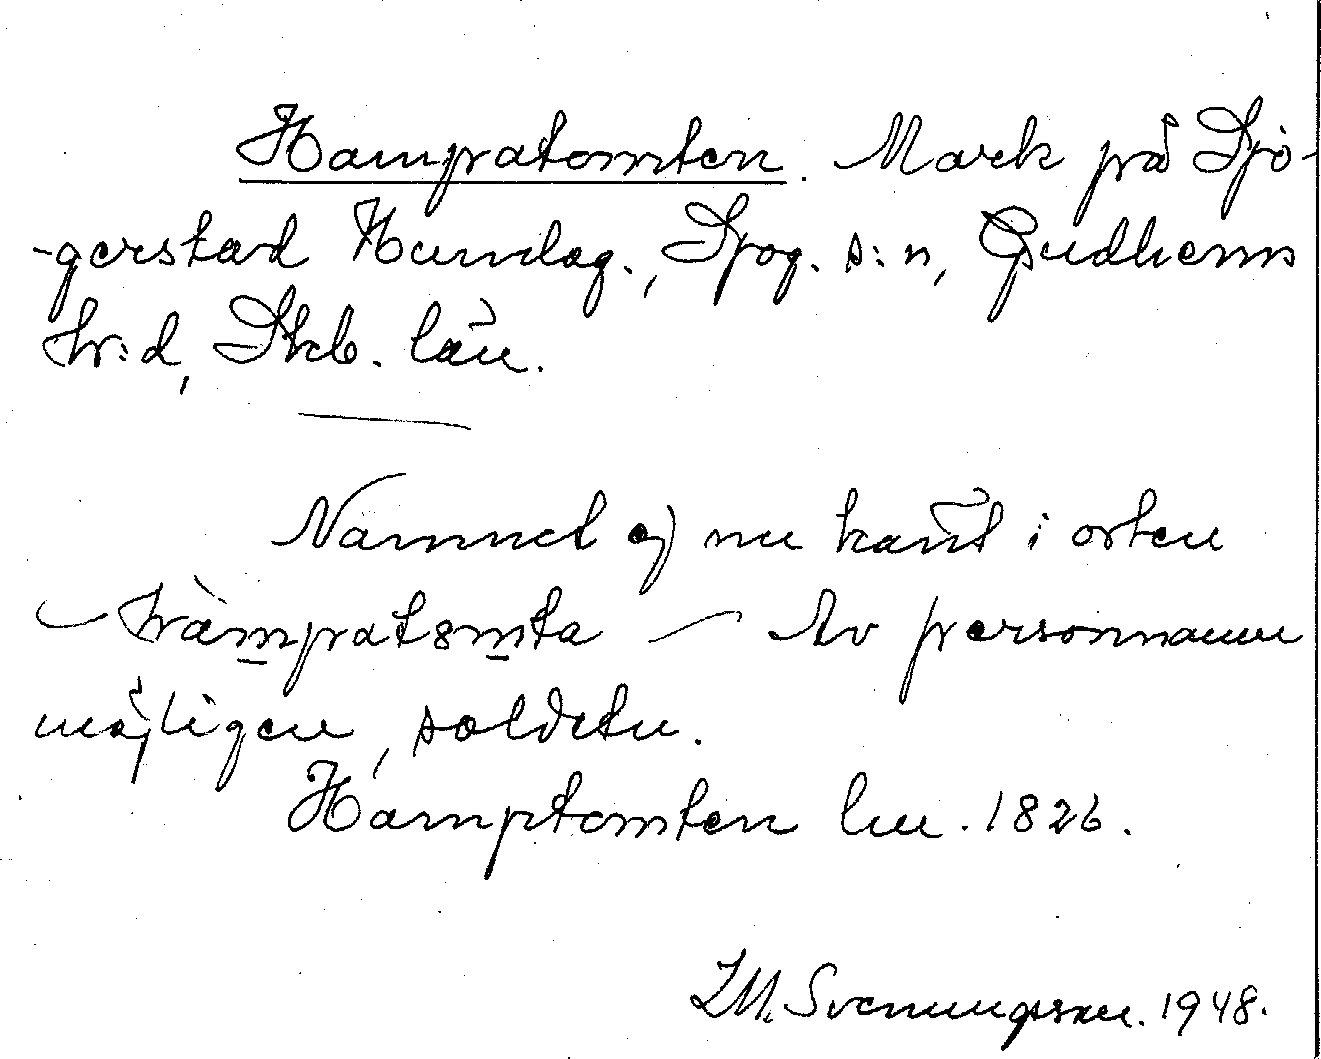 Hampatomten. Mark på Sjö-
-gerstad Hundag., Sjög. s:n, Gudhems
hr:d, Skb. län.
Namnet ej nu känt i orten
– hàmpatomta – Av personnamn
möjligen, soldatn.
Hamptomten lm. 1826.
Svenungsson. 1948.